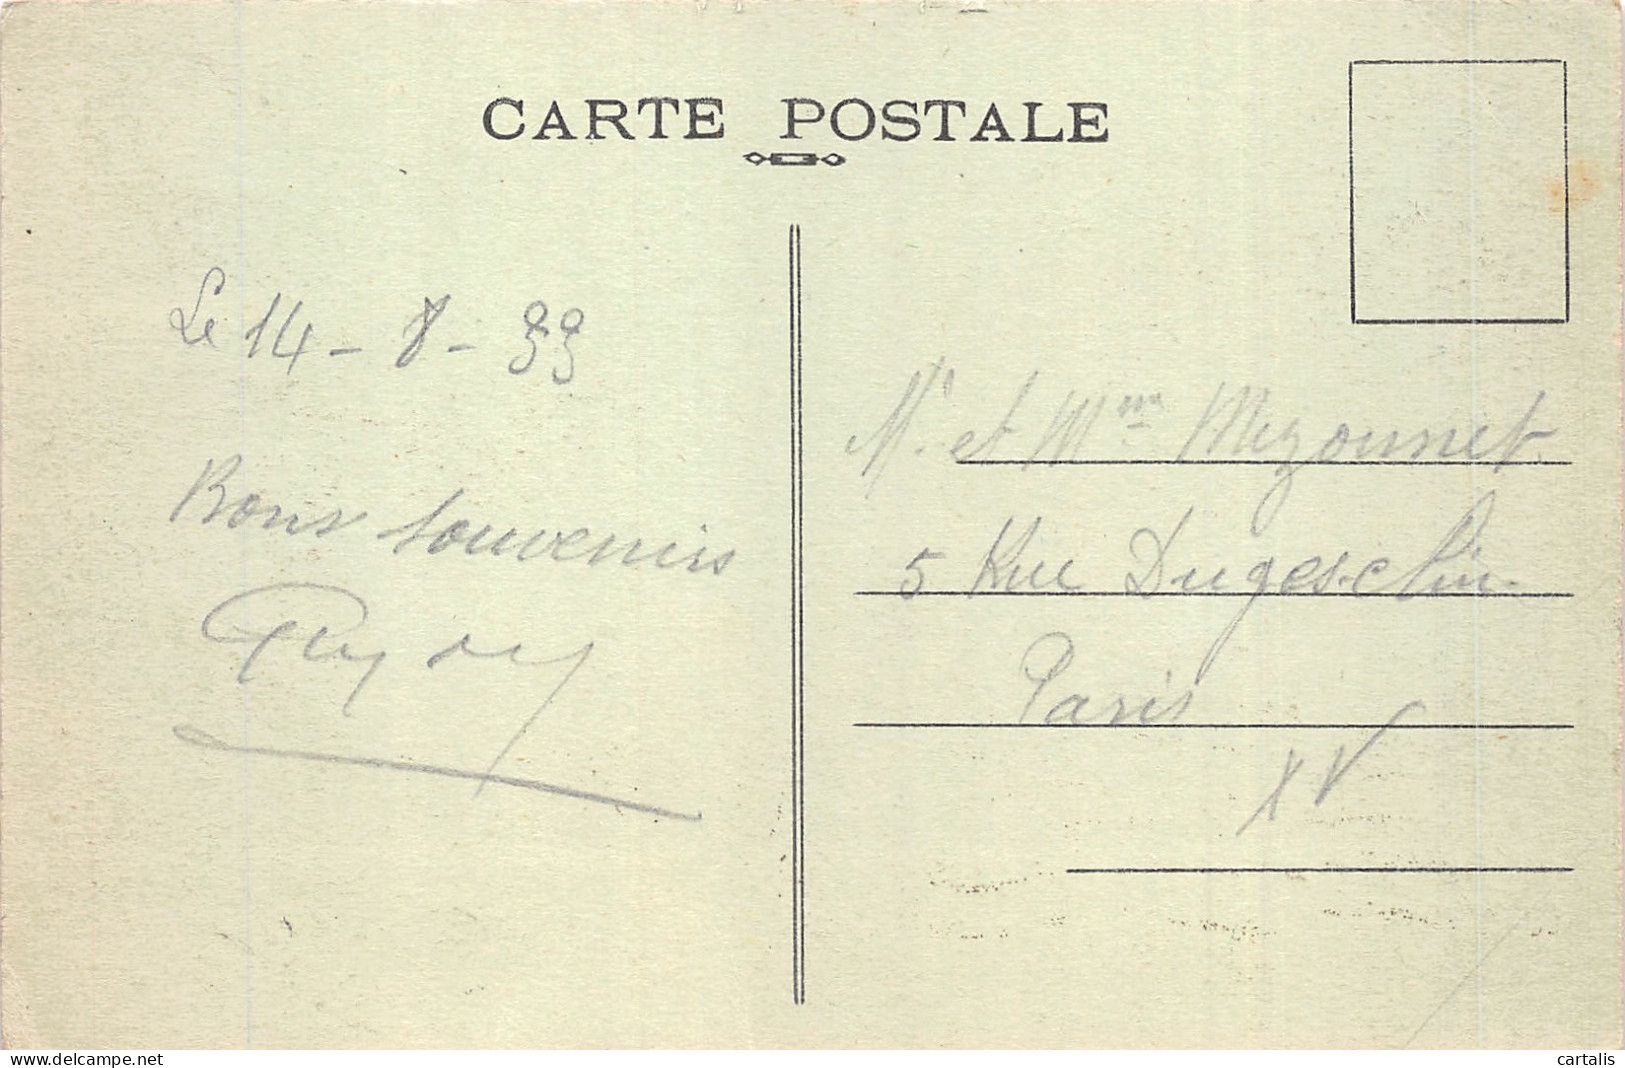 CARTE POSTALE
Le 14 - 8 - 33
Bons souvenirs
Mr et Mme Mezonnet
5 Rue Dugesclin
Paris
XV
www.delcampe.net
cartalis